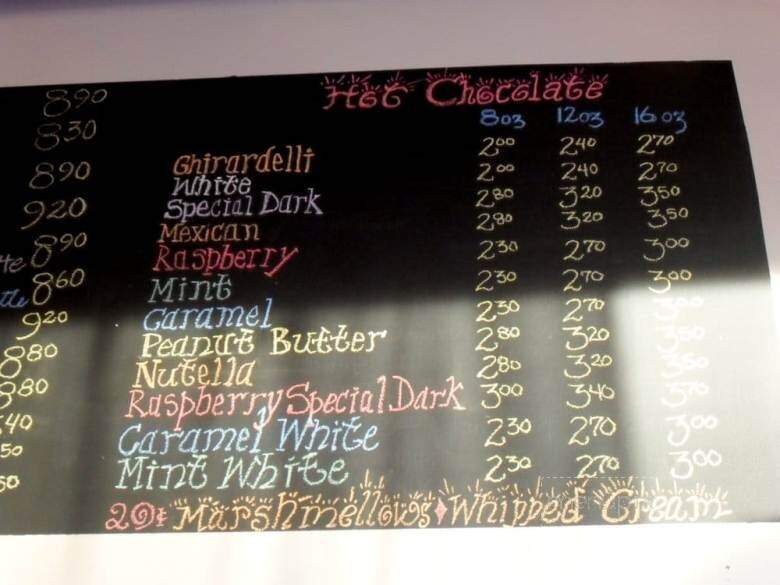 8⁹⁰
8³⁰
8⁹⁰
9²⁰
tte 8⁹⁰
ttle 8⁶⁰
9²⁰
8⁸⁰
8⁸⁰
⁴⁰
⁵⁰
⁵⁰
Hot Chocolate
8oz 12oz 16oz
Ghirardelli 2⁰⁰ 2⁴⁰ 2⁷⁰
White 2⁰⁰ 2⁴⁰ 2⁷⁰
Special Dark 2⁸⁰ 3²⁰ 3⁵⁰
Mexican 2⁸⁰ 3²⁰ 3⁵⁰
Raspberry 2³⁰ 2⁷⁰ 3⁰⁰
Mint 2³⁰ 2⁷⁰ 3⁰⁰
Caramel 2³⁰ 2⁷⁰ 3⁰⁰
Peanut Butter 2⁸⁰ 3²⁰ 3⁵⁰
Nutella 2⁸⁰ 3²⁰ 3⁵⁰
Raspberry Special Dark 3⁰⁰ 3⁴⁰ 3⁷⁰
Caramel White 2³⁰ 2⁷⁰ 3⁰⁰
Mint White 2³⁰ 2⁷⁰ 3⁰⁰
20¢ Marshmellows ♦ Whipped Cream